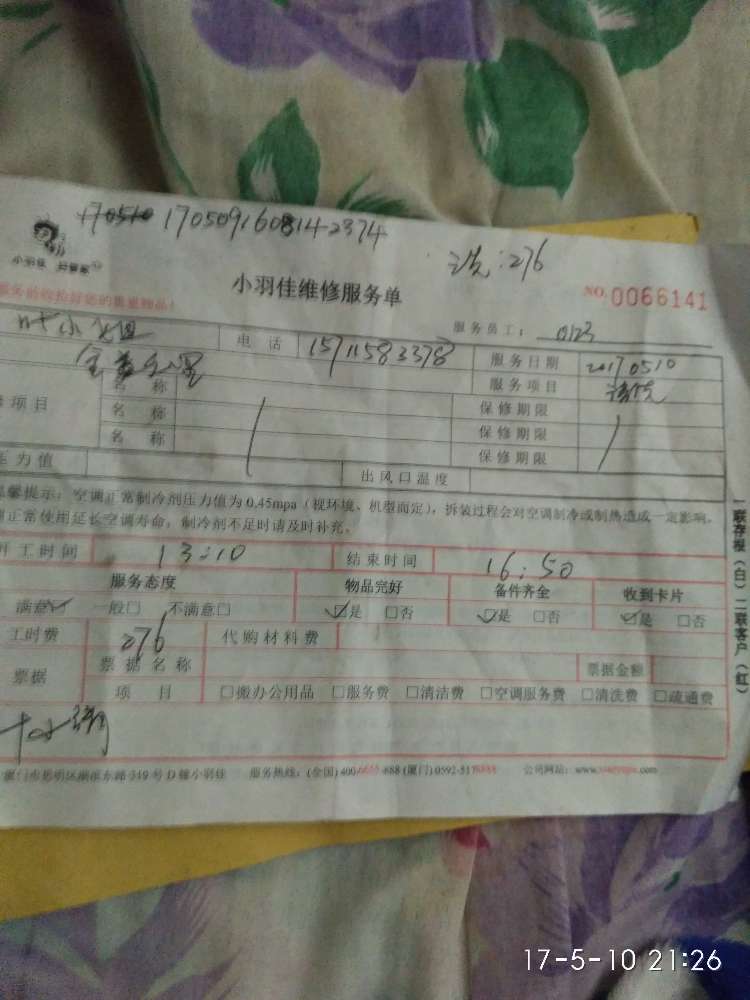 170510 170509160814-2374
洗:276
小羽佳
小羽佳维修服务单
NO.0066141
服务员工: 0123
叶小姐 电话 15711583378 服务日期 20170510
名称 服务项目 清洗
项目 名称 保修期限
名称 保修期限
保修期限
压力值 出风口温度
温馨提示:空调正常制冷剂压力值为0.45mpa(视环境、机型而定),拆装过程会对空调制冷或制热造成一定影响。
正常使用延长空调寿命,制冷剂不足时请及时补充。
开工时间 13:10 结束时间 16:50
服务态度 物品完好 备件齐全 收到卡片
满意☑ 一般□ 不满意□ ☑是 □否 ☑是 □否 ☑是 □否
工时费 276 代购材料费
票据 票据名称 票据金额
项目 □搬办公用品 □服务费 □清洁费 □空调服务费 □清洗费 □疏通费
一联存根(白)二联客户(红)
厦门市思明区湖滨东路319号D幢小羽佳 服务热线:(全国)4006655-688(厦门)0592-5178888 公司网站:
17-5-10 21:26